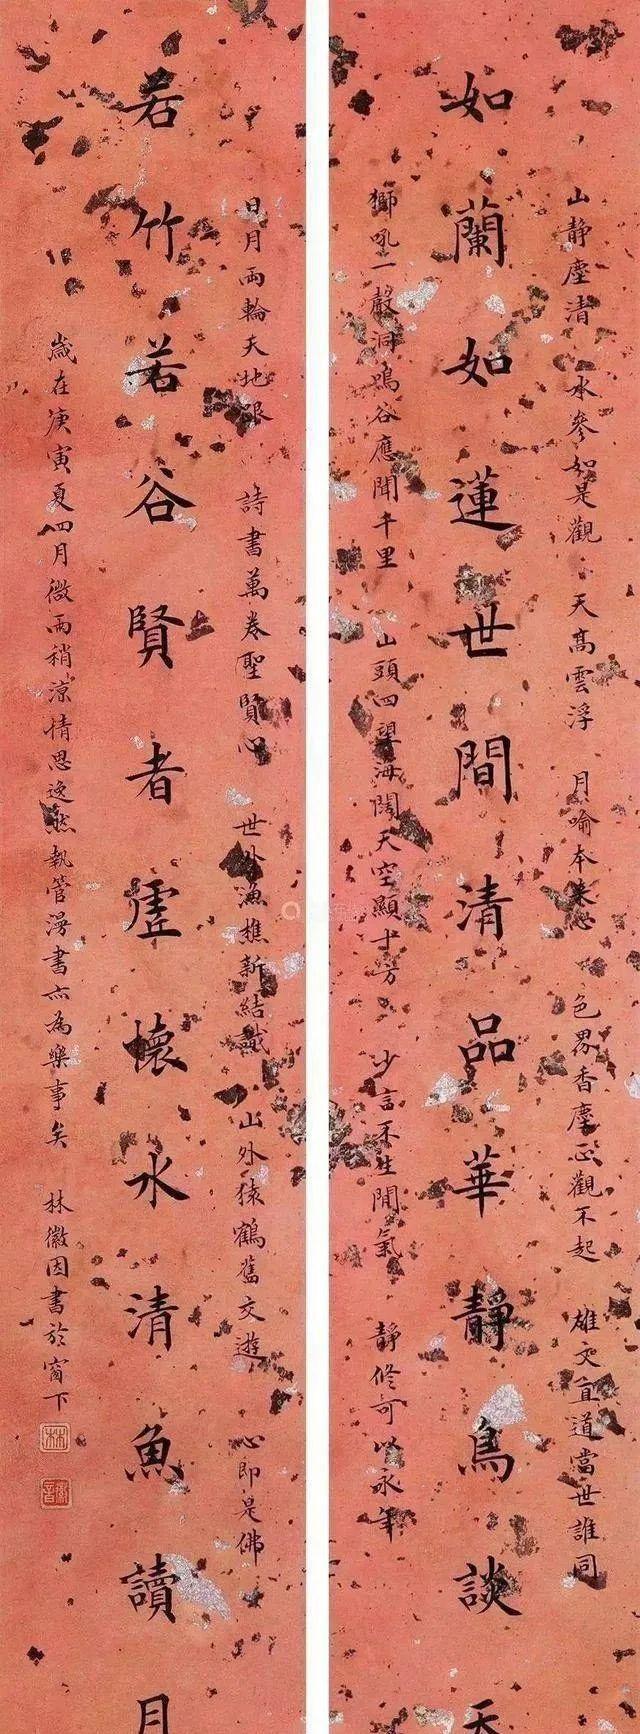 山静塵清 水參如是觀 天高雲浮 月喻本来心 色界香塵正觀不起 雄文直道當世誰同
如蘭如蓮世間清品華靜鳥談天
獅吼一聲洞鳴谷應聞千里 山頭四望海闊天空顯十方 少言不生閒氣 靜修可以永年
日月兩輪天地眼 詩書萬卷聖賢心 世外漁樵新結識 山外猿鶴舊交遊 心即是佛
若竹若谷賢者虛懷水清魚讀月
歲在庚寅夏四月微雨稍涼情思逸然執管漫書亦為樂事矣 林徽因書於窗下
林
徽音